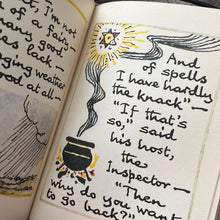 I'm not
of a fairy
many good
lack—
ging weather
ood at all—
And
of spells
I have hardly
the knack"—
"If that's
so," said
his host,
the
Inspector—
"Then
why do you want
to go back?"